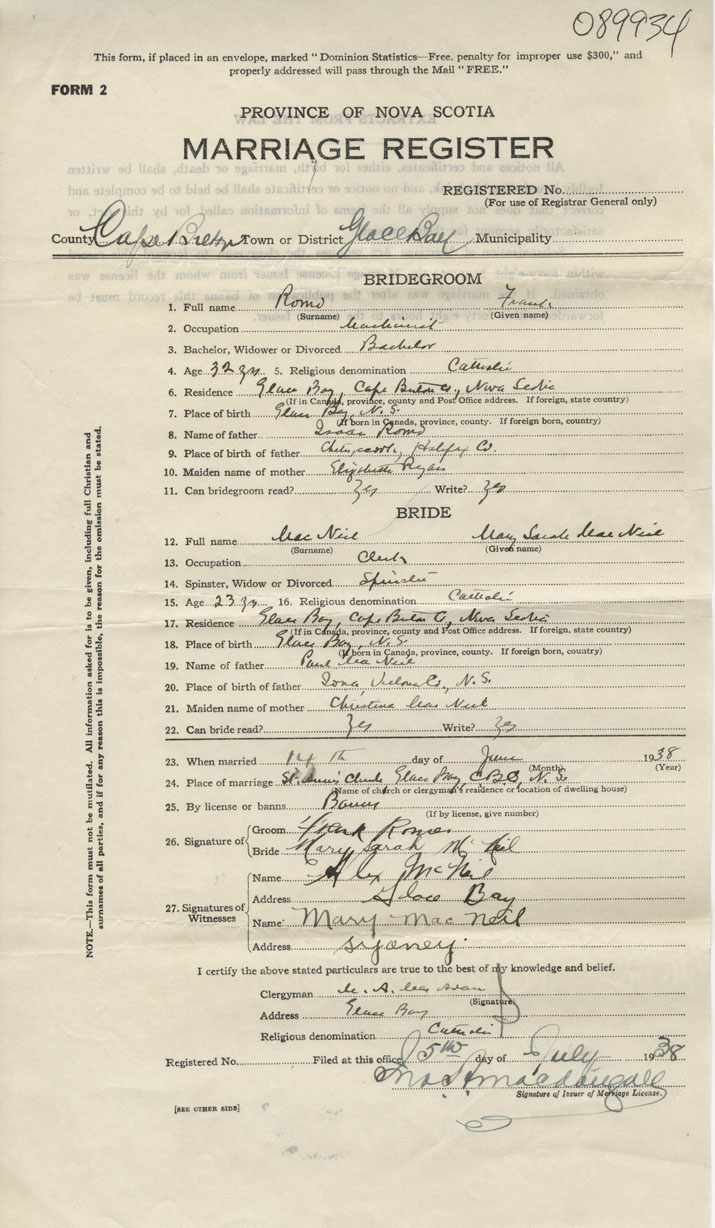 089934
This form, if placed in an envelope, marked "Dominion Statistics—Free, penalty for improper use $300," and
properly addressed will pass through the Mail "FREE."
FORM 2
PROVINCE OF NOVA SCOTIA
MARRIAGE REGISTER
REGISTERED No.
(For use of Registrar General only)
County Cape Breton Town or District Glace Bay Municipality
BRIDEGROOM
1. Full name Romo Frank
(Surname) (Given name)
2. Occupation Machinist
3. Bachelor, Widower or Divorced Bachelor
4. Age 32 yrs 5. Religious denomination Catholic
6. Residence Glace Bay, Cape Breton Co., Nova Scotia
(If in Canada, province, county and Post Office address. If foreign, state country)
7. Place of birth Glace Bay, N.S.
(If born in Canada, province, county. If foreign born, country)
8. Name of father Isaac Romo
9. Place of birth of father Halifax Co.
10. Maiden name of mother Elizabeth Ryan
11. Can bridegroom read? Yes Write? Yes
BRIDE
12. Full name Mac Neil Mary Sarah Mac Neil
(Surname) (Given name)
13. Occupation Clerk
14. Spinster, Widow or Divorced Spinster
15. Age 23 yrs 16. Religious denomination Catholic
17. Residence Glace Bay, Cape Breton Co, Nova Scotia
(If in Canada, province, county and Post Office address. If foreign, state country)
18. Place of birth Glace Bay, N.S.
(If born in Canada, province, county. If foreign born, country)
19. Name of father Paul Mac Neil
20. Place of birth of father Iona Victoria Co., N.S.
21. Maiden name of mother Christina Mac Neil
22. Can bride read? Yes Write? Yes
23. When married 14th day of June 1938
(Month) (Year)
24. Place of marriage St. Anne's Church Glace Bay, C.B.Co, N.S.
(Name of church or clergyman's residence or location of dwelling house)
25. By license or banns Banns
(If by license, give number)
26. Signature of
Groom Frank Romeo
Bride Mary Sarah McNeil
27. Signatures of Witnesses
Name Alex McNeil
Address Glace Bay
Name Mary MacNeil
Address Sydney.
I certify the above stated particulars are true to the best of my knowledge and belief.
Clergyman M. A. Mac Adam
(Signature)
Address Glace Bay
Religious denomination Catholic
Registered No. Filed at this office 5th day of July 1938
Macdougall
Signature of Issuer of Marriage License.
[SEE OTHER SIDE]
NOTE.—This form must not be mutilated. All information asked for is to be given, including full Christian and
surnames of all parties, and if for any reason this is impossible, the reason for the omission must be stated.